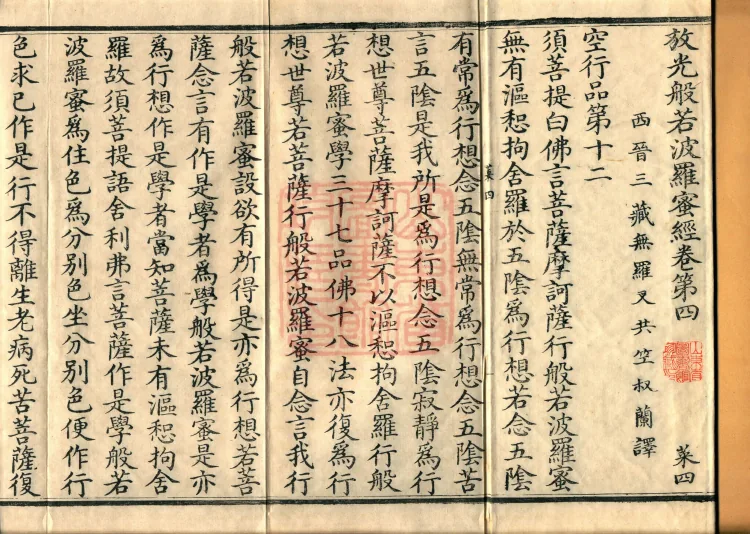 放光般若波羅蜜經卷第四 菜四
西晉三藏無羅叉共竺叔蘭譯
空行品第十二
須菩提白佛言菩薩摩訶薩行般若波羅蜜
無有漚惒拘舍羅於五陰爲行想若念五陰
菜四
有常爲行想念五陰無常爲行想念五陰苦
言五陰是我所是爲行想念五陰寂靜爲行
想世尊菩薩摩訶薩不以漚惒拘舍羅行般
若波羅蜜學三十七品佛十八法亦復爲行
想世尊若菩薩行般若波羅蜜自念言我行
般若波羅蜜設欲有所得是亦爲行想若菩
薩念言有作是學者爲學般若波羅蜜是亦
爲行想作是學者當知菩薩未有漚惒拘舍
羅故須菩提語舍利弗言菩薩作是學般若
波羅蜜爲住色爲分別色坐分別色便作行
色求已作是行不得離生老病死苦菩薩復